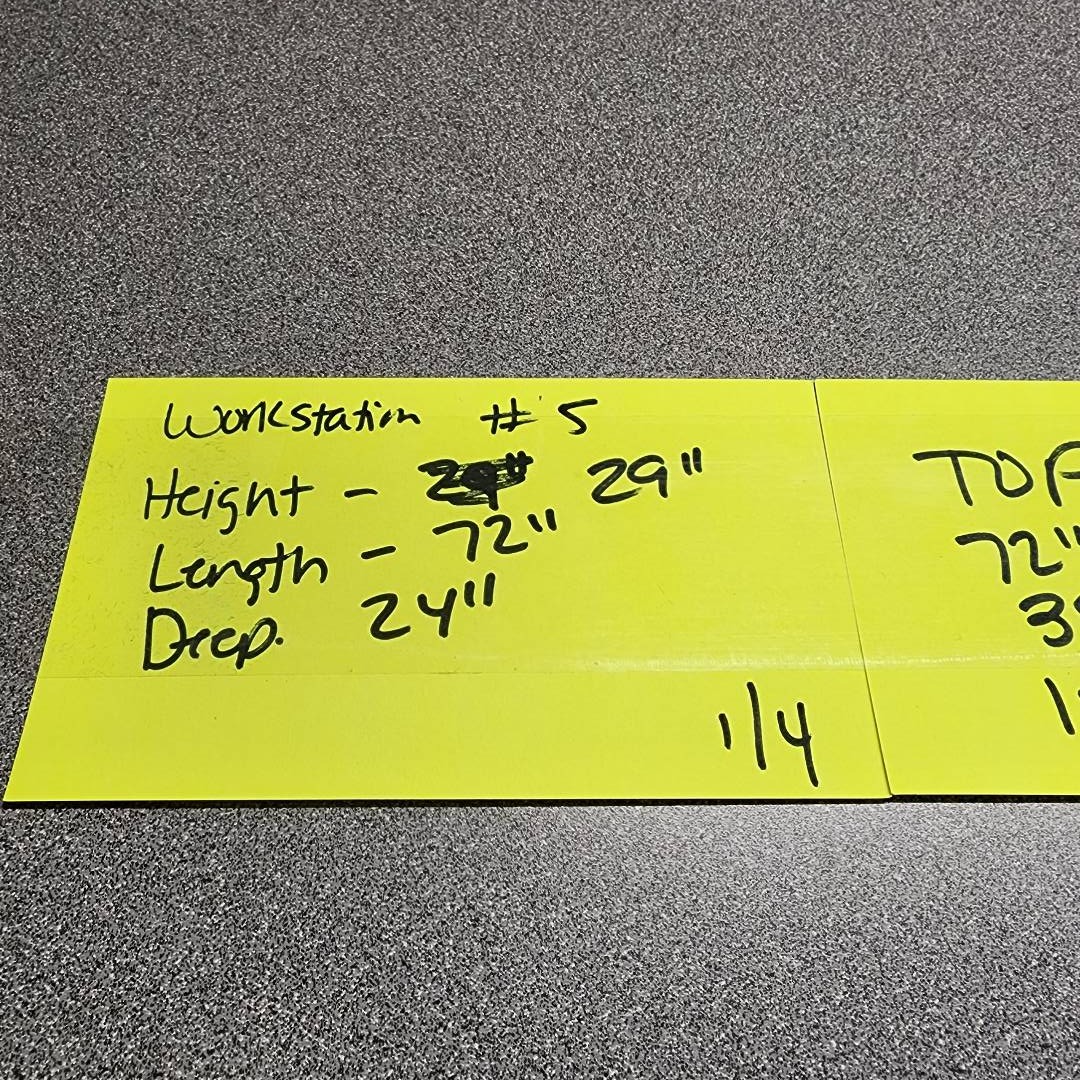 Workstation # 5
Height - 29"
Length - 72"
Deep. 24"
1/4
72"